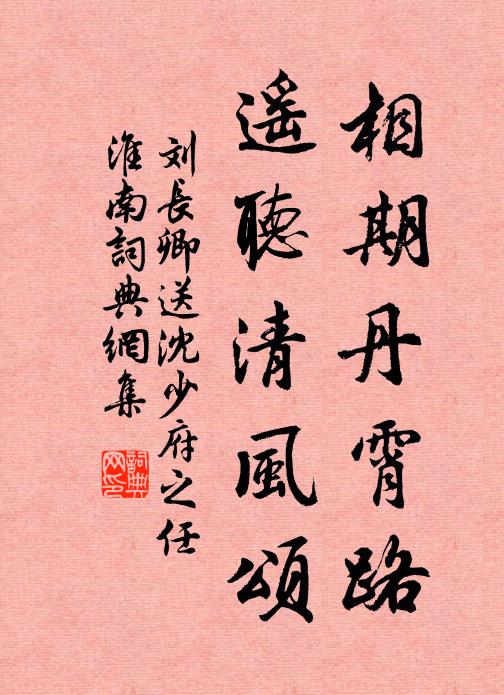 相期丹霄路
遥聽清風頌
刘長卿送沈少府之任
淮南詞典網集
詞典網印